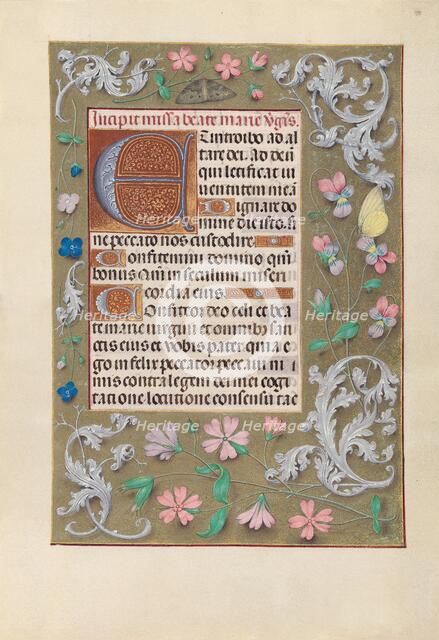 Incipit missa beate marie v͛gis.
Et introibo ad al
tare dei. Ad deū
qui letificat iu
uentutem meā
Dignare do
mine die isto si
ne peccato nos custodire
Confitemini domino qm̄
bonus Qm̄ in seculum miseri
cordia eius.
Confiteor deo celi et bea
te marie virgini et omnibꝰ san
ctis eius et vobis pater quia e
go infelix peccator peccaui ni
mis contra legem dei mei cogi
tatione locutione consensu tac
Heritage